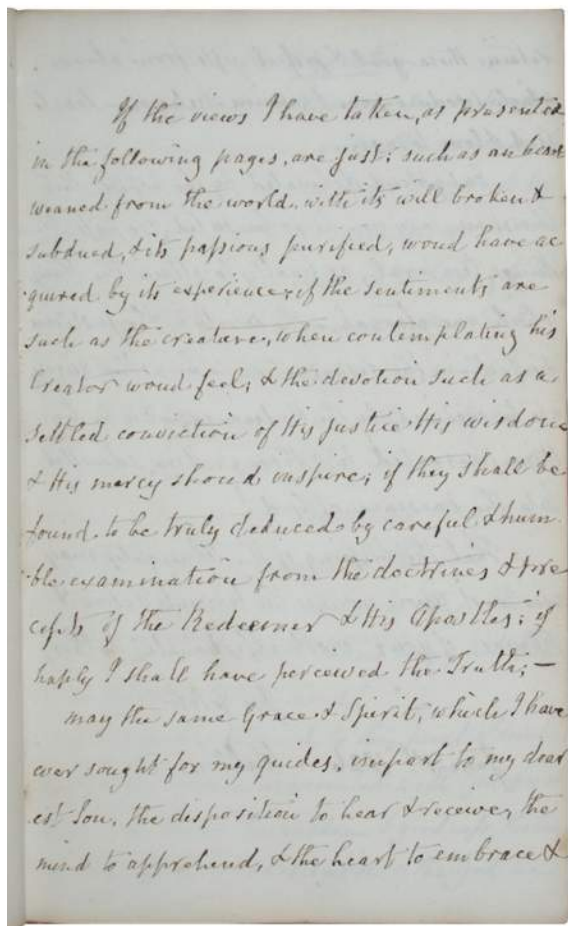 If the views I have taken, as presented
in the following pages, are just; such as an heart
weaned from the world, with its will broken &
subdued, & its passions purified, woud have ac
quired by its experience; if the sentiments are
such as the creature, when contemplating his
Creator woud feel; & the devotion such as a
settled conviction of His justice His wisdom
& His mercy shoud inspire; if they shall be
found to be truly deduced by careful & hum
ble examination from the doctrines & pre
cepts of the Redeemer & His Apostles; if
haply I shall have perceived the Truth; —
may the same Grace & Spirit, which I have
ever sought for my guides, impart to my dear
est Son, the disposition to hear & receive, the
mind to apprehend, & the heart to embrace &